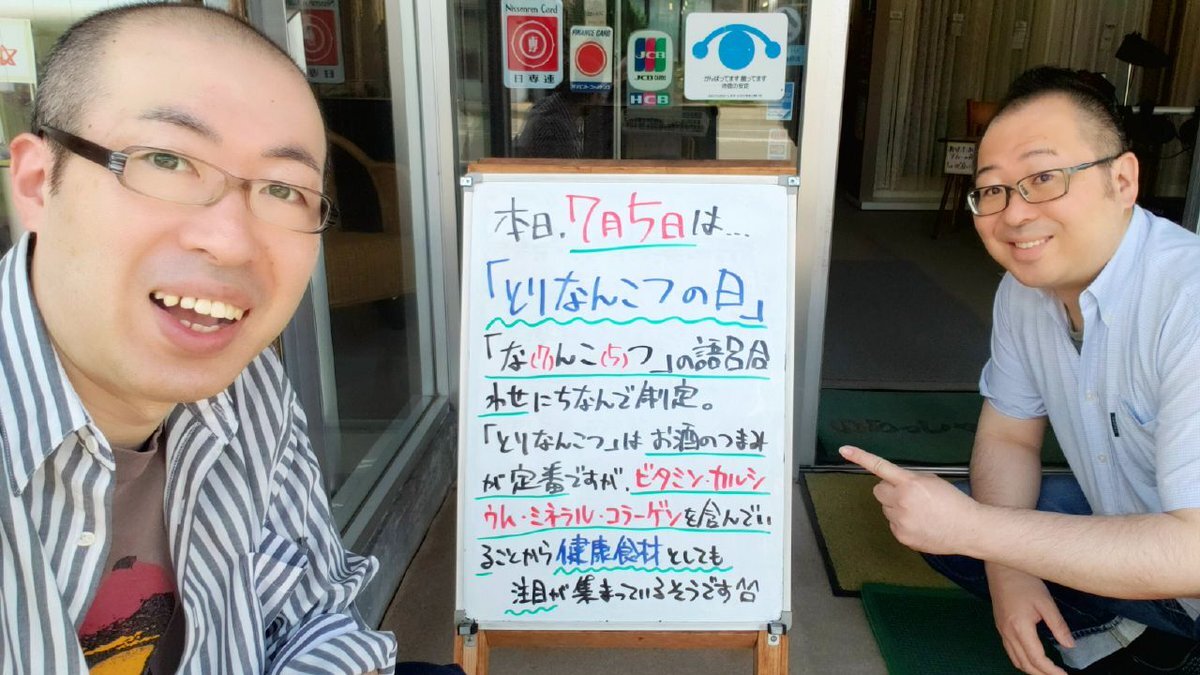 Nissenren Card
日専連
FINANCE CARD
JCB
JCB CARDS
HCB
がんばってます 贈ってます
本日、7月5日は…
「とりなんこつの日」
「な(7)んこ(5)つ」の語呂合
わせにちなんで制定。
「とりなんこつ」はお酒のつまみ
が定番ですが、ビタミン・カルシ
ウム・ミネラル・コラーゲンを含んでい
ることから健康食材としても
注目が集まっているそうです^^